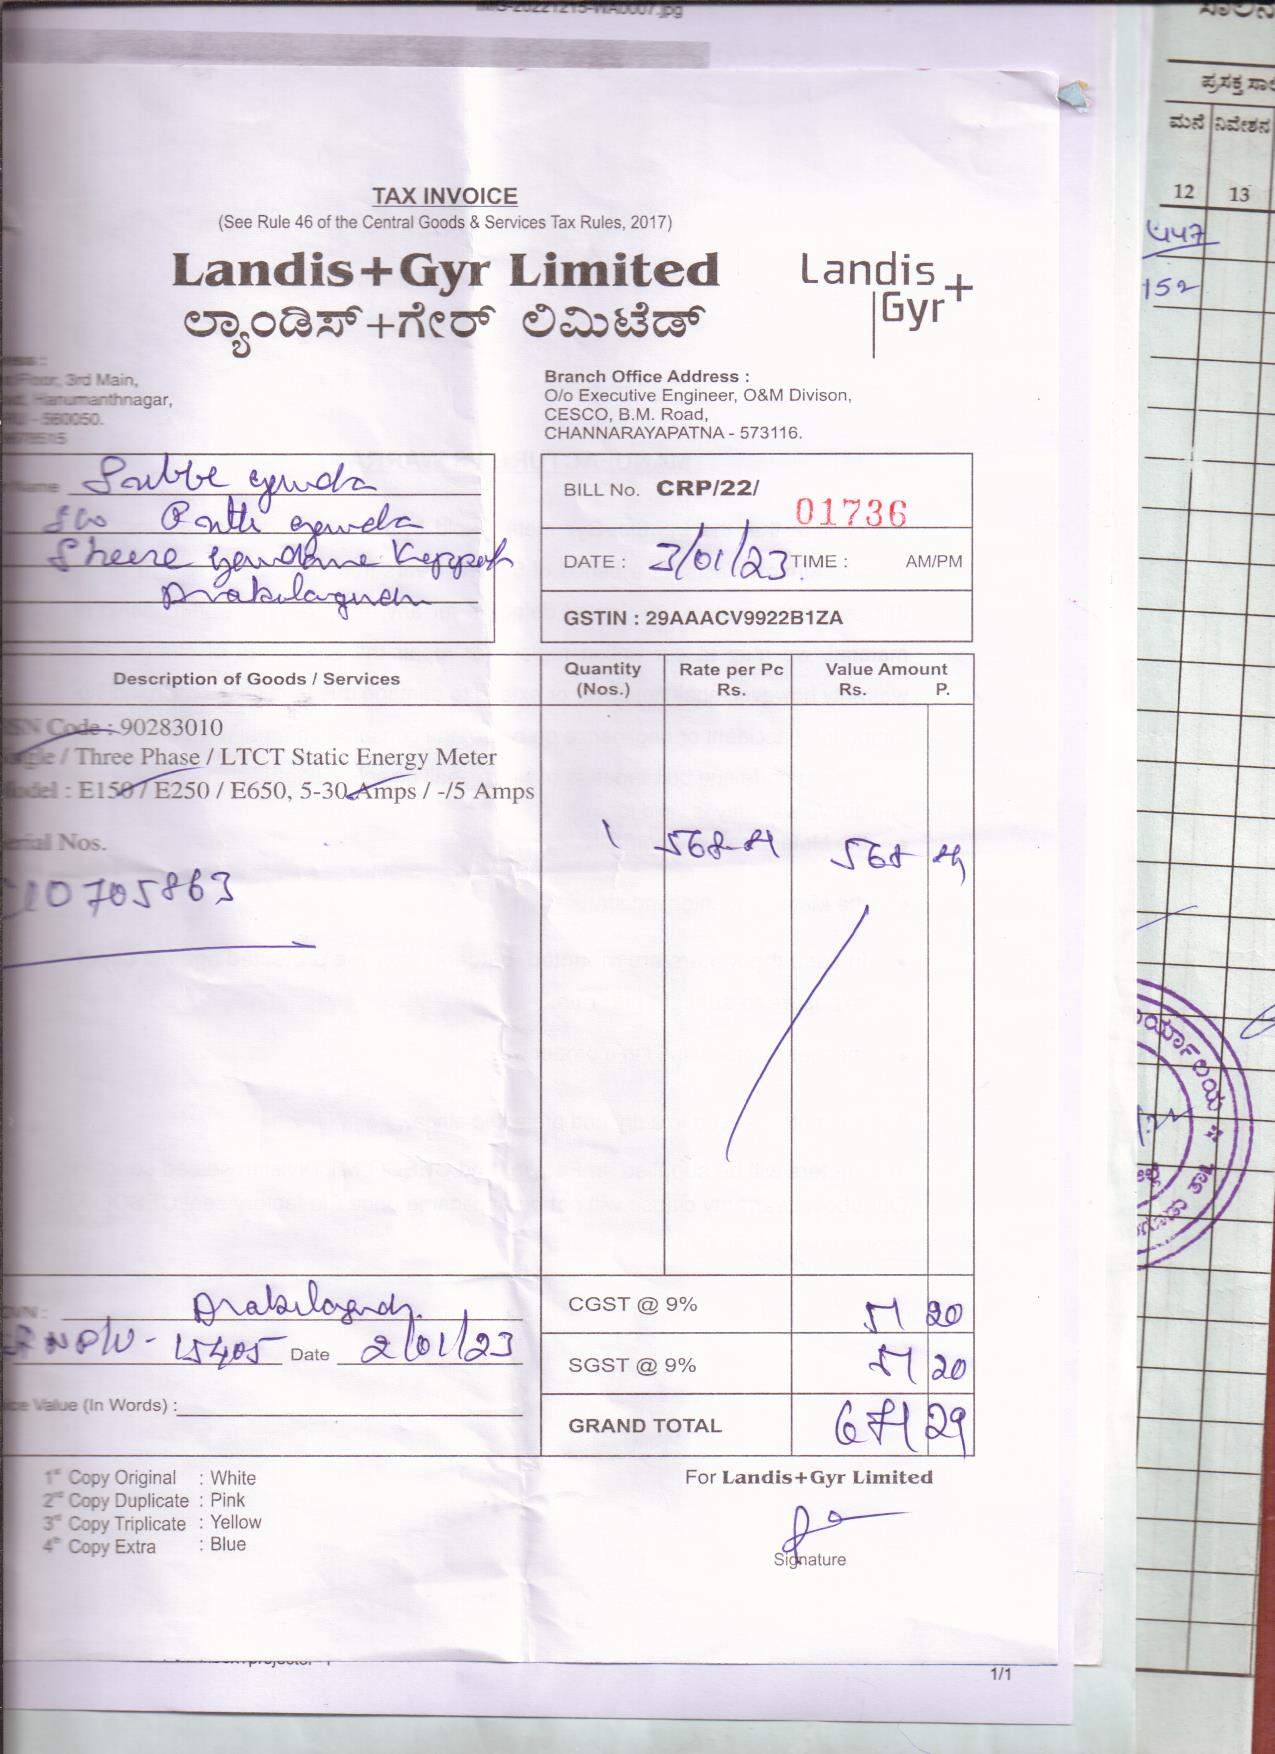 IMG-20221215-WA0007.jpg
TAX INVOICE
(See Rule 46 of the Central Goods & Services Tax Rules, 2017)
Landis+Gyr Limited
ಲ್ಯಾಂಡಿಸ್+ಗೇರ್ ಲಿಮಿಟೆಡ್
Landis
Gyr+
Floor, 3rd Main,
Hanumanthnagar,
- 560050.
Branch Office Address :
O/o Executive Engineer, O&M Divison,
CESCO, B.M. Road,
CHANNARAYAPATNA - 573116.
Name Subbe gowda
S/o gowda
BILL No. CRP/22/ 01736
DATE : 3/01/23 TIME : AM/PM
GSTIN : 29AAACV9922B1ZA
Description of Goods / Services
Quantity (Nos.)
Rate per Pc Rs.
Value Amount Rs. P.
Code : 90283010
/ Three Phase / LTCT Static Energy Meter
Model : E150 / E250 / E650, 5-30 Amps / -/5 Amps
Serial Nos.
10705863
1 568 568
CGST @ 9% 51 20
Date 2/01/23
15405
SGST @ 9% 51 20
Value (In Words) :
GRAND TOTAL 671 29
1st Copy Original : White
2nd Copy Duplicate : Pink
3rd Copy Triplicate : Yellow
4th Copy Extra : Blue
For Landis+Gyr Limited
Signature
1/1
ಪ್ರಸಕ್ತ ಸಾ
ಮನೆ ನಿವೇಶನ
12 13
447
152